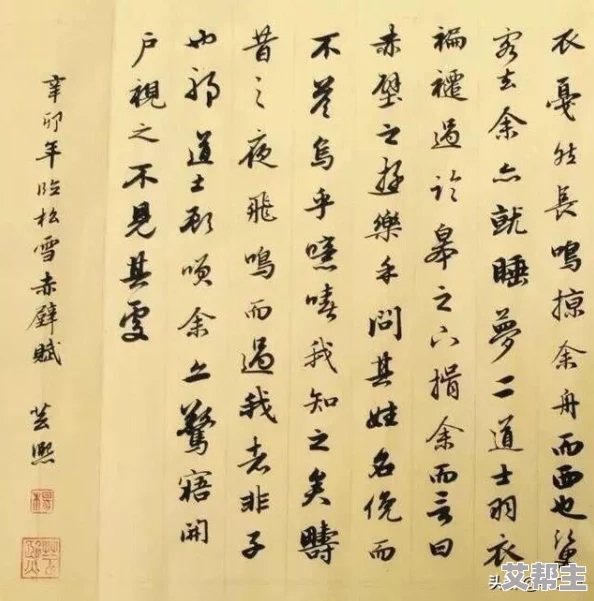 衣戛然長鳴掠余舟而西也須
客去余亦就睡夢二道士羽衣
褊褼過臨皋之下揖余而言曰
赤壁之遊樂乎問其姓名俛而
不答烏乎噫嘻我知之矣疇
昔之夜飛鳴而過我者非子
也耶道士顧笑余亦驚寤開
戶視之不見其處
辛卯年臨松雪赤壁賦 芸熙
艾帮主